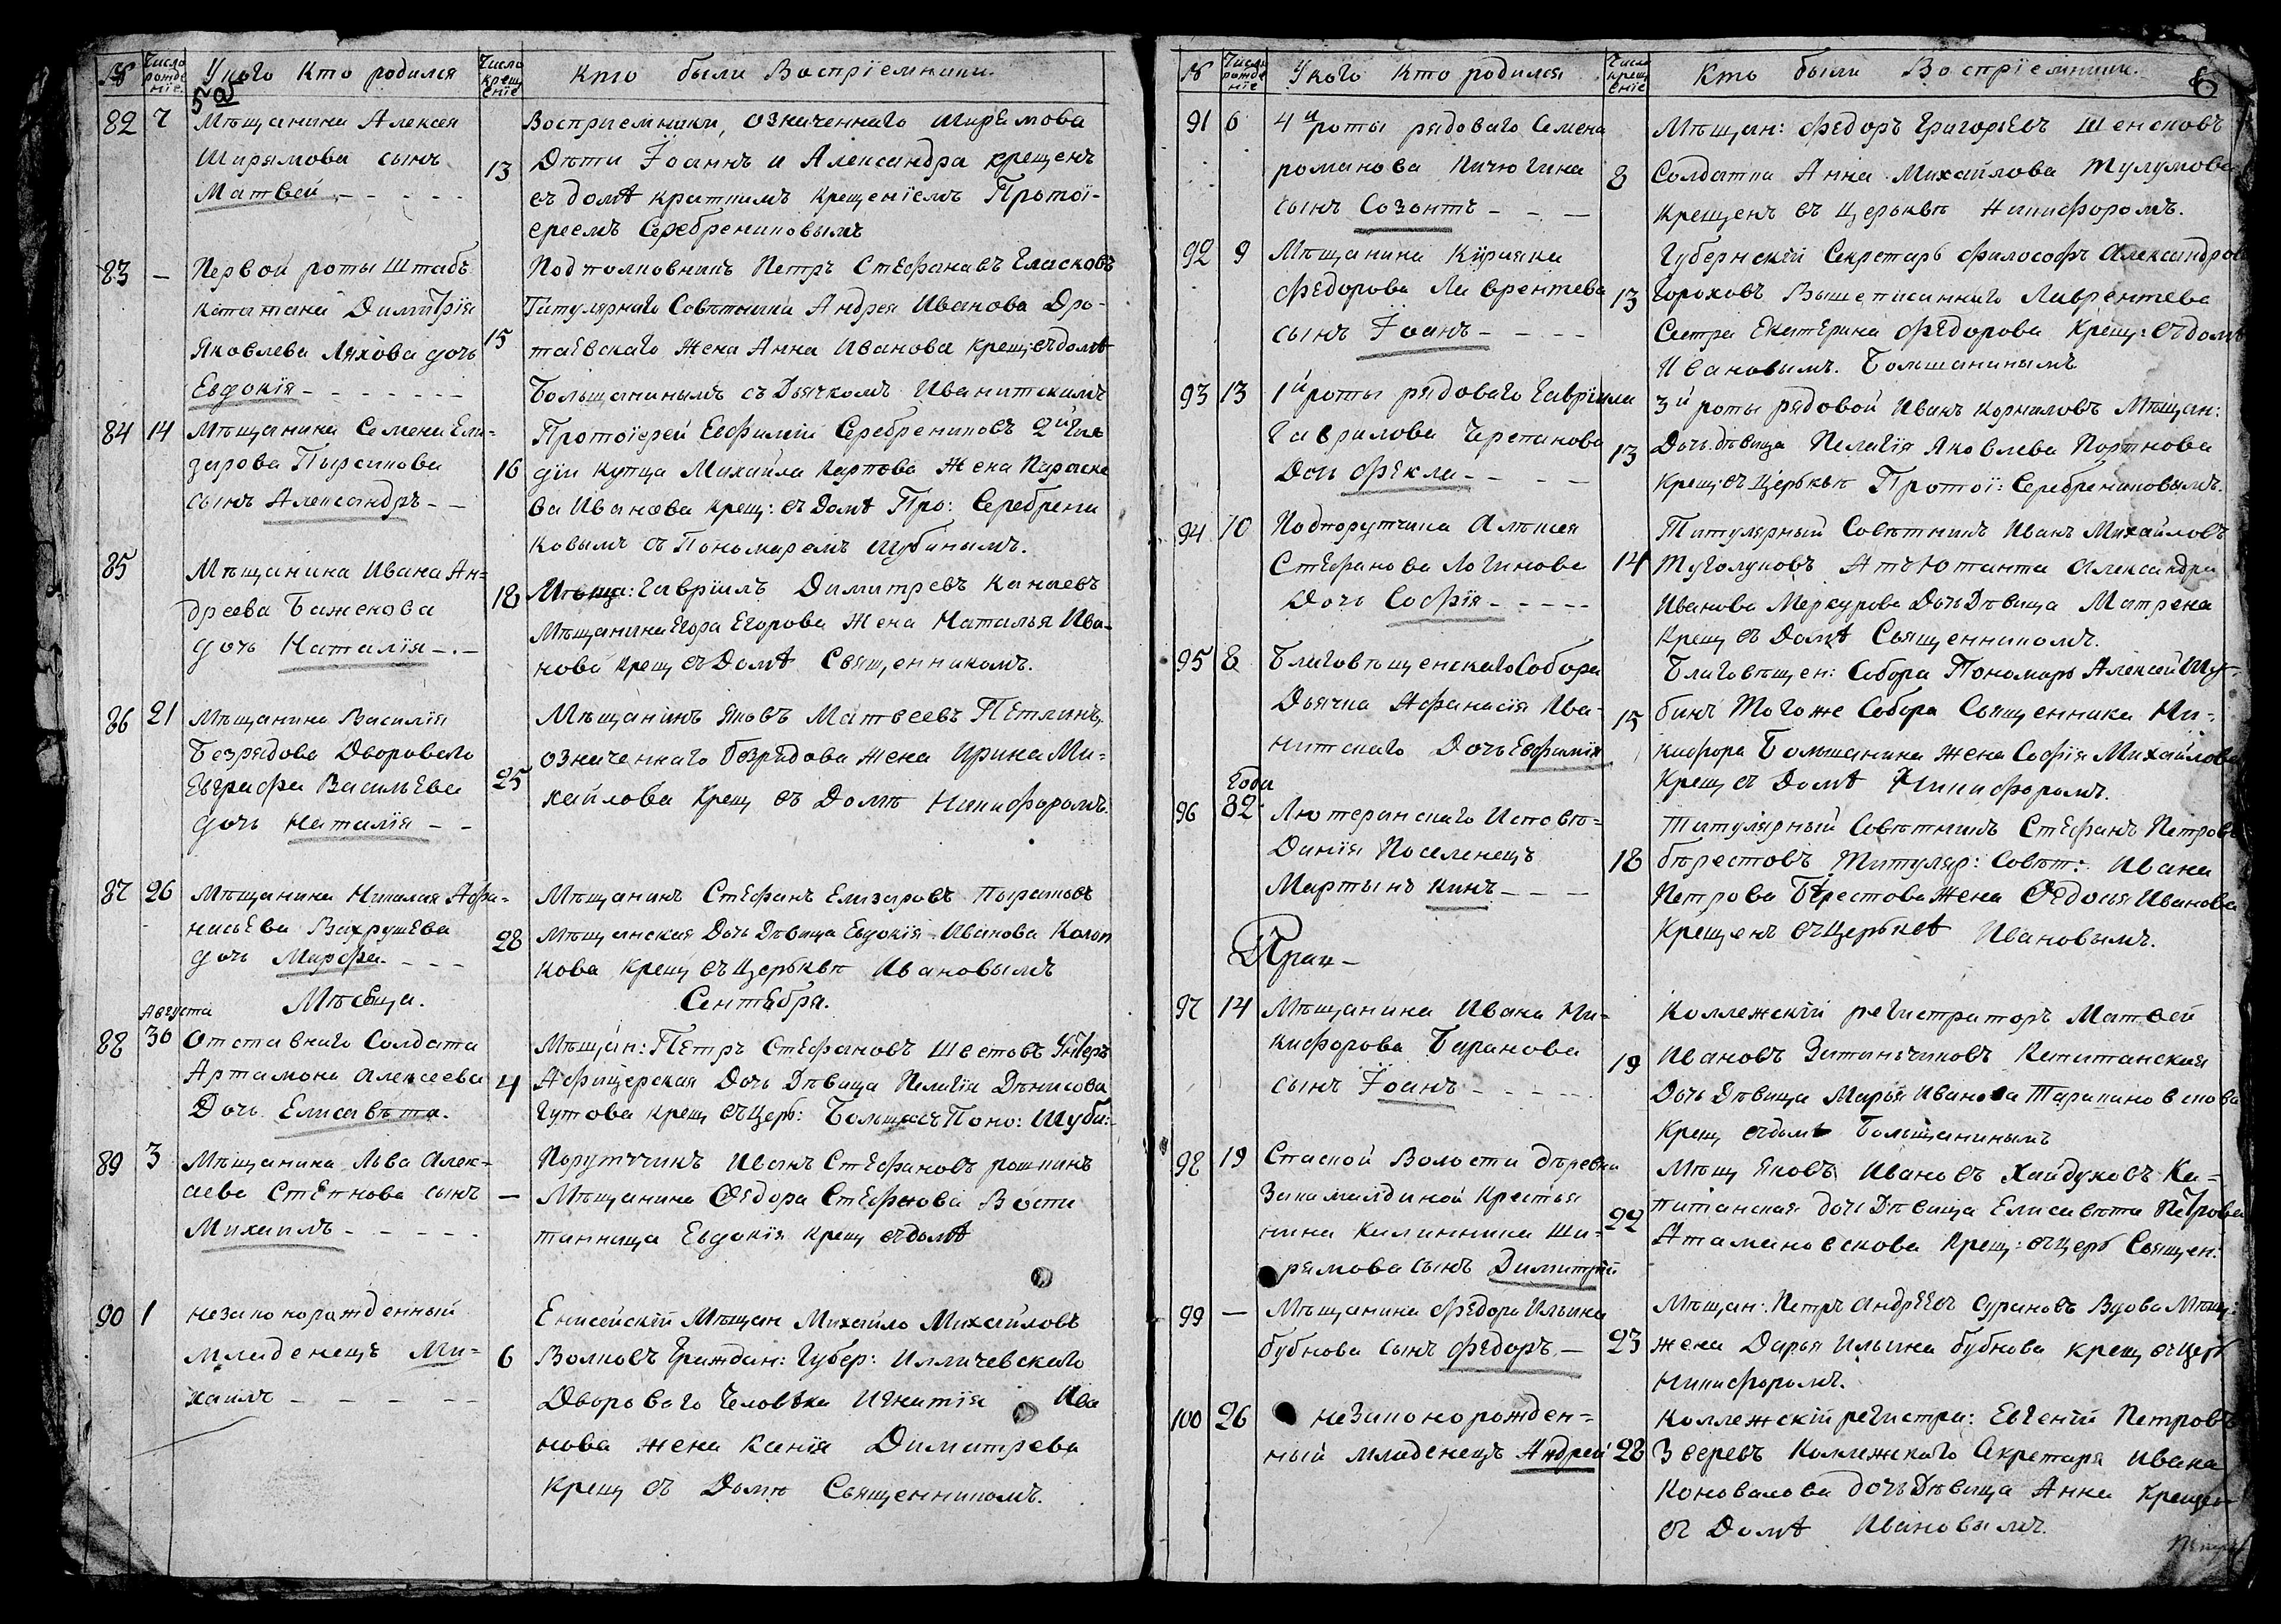 № Число рожденїе У кого Кто родился Число крещенїе Кто были Воспрїемники.
5 а
82 7 Мѣщанина Алексея
Ширямова сынъ
Матвей
13
Восприемники, означеннаго Ширямова
Дѣти Іоаннъ и Александра крещенъ
въ домѣ краткимъ крещенїемъ Протої-
ереемъ Серебрениковымъ
83 — Первой роты Штабъ
капитана Димитрїя
Яковлева Ляхова дочь
Евдокїя
15
Подполковникъ Петръ Стефановъ Гласковъ
Титулярнаго Совѣтника Андрея Иванова Дро-
таевскаго жена Анна Иванова крещ: въ домѣ
Большанинымъ съ Дьячкомъ Иванитскимъ
84 14 Мѣщанина Семена Ели-
зарова Пырсикова
сынъ Александръ
16
Протоїерей Евфимїй Серебрениковъ 2й Гил
дїи купца Михайла Карпова Жена Параске
ва Иванова крещ: въ Домѣ Про: Серебрени
ковымъ съ Пономаремъ Шубинымъ.
85 Мѣщанина Ивана Ан-
дреева Баженова
дочь Наталїя
18
Мѣща: Гаврїилъ Димитревъ Канаевъ
Мѣщанина Егора Егорова Жена Наталья Ива-
нова крещ въ Домѣ Священникомъ.
86 21 Мѣщанина Василїя
Безрядова Дворового
Евграфа Васильева
дочь Наталїя
25
Мѣщанинъ Яковъ Матвеевъ Петлинъ,
означеннаго безрядова жена Ирина Ми-
хайлова крещ въ Домѣ Никифоромъ.
87 26 Мѣщанина Николая Афа-
насьева Вахрушева
дочь Марфа
28
Мѣщанинъ Стефанъ Елизаровъ
Мѣщанская Дочь Дѣвица Евдокїя Иванова
кова крещ въ Церьквѣ Ивановымъ
Мѣсяца. Сентебря.
Августа
88 30 Отставнаго Солдата
Артамона Алексеева
Дочь Елисавѣта.
4
Мѣщан: Петръ Стефановъ Шестовъ Унтеръ
Афицерская Дочь Дѣвица Пелагїя Денисова
Гутова крещ въ Церь: Больша: съ Поно: Шуби:
89 3 Мѣщанина Льва Алек-
аева Степнова сынъ
Михаилъ
—
Порутчикъ Иванъ Стефановъ рошкинъ
Мѣщанина Федора Стефанова Воспи
танница Евдокїя крещ въ домѣ
90 1 незаконорожденный
младенецъ Ми-
хаилъ
6
Енисейскїй Мѣщан Михайло Михайловъ
Волковъ Граждан: Губер: Илличевскаго
Двороваго Человѣка Игнатїя Ива
нова жена Ксанїя Димитрева
крещ въ Домѣ Священникомъ.
№ Число рожденїе У кого Кто родился Число крещенїе Кто были Воспрїемники. 6
91 6 4й роты рядоваго Семена
романова Пичюгина
сынъ Созонтъ
8
Мѣщан: Федоръ Григорьевъ Шенсковъ
Солдатка Анна Михайлова Тулумова
крещенъ въ Церьквѣ Никифоромъ.
92 9 Мѣщанина Киріяка
Федорова Лаврентева
сынъ Іоанъ
13
Губернскїй Секретарь Философъ Александровъ
Гороховъ Вышеписаннаго Лаврентева
Сестра Екатерина Федорова крещ: въ домѣ
Ивановымъ. Большанинымъ
93 13 1й роты рядоваго Гаврїила
Гаврилова Черепанова
Дочь Фекла
13
3й роты рядовой Иванъ Корниловъ Мѣщан:
Дочь дѣвица Пелагїя Яковлева Портнова
крещ: въ Церьквѣ Протої: Серебрениковымъ.
94 10 Подпорутчика Алексея
Стефанова Логинова
Дочь Софїя
14
Титулярный Совѣтникъ Иванъ Михайловъ
Туголуковъ Атъютанта Александра
Иванова Меркурова Дочь Дѣвица Матрена
крещ въ Домѣ Священникомъ.
95 8 Благовѣщенскаго Собора
Дьячка Афанасїя Ива-
нитскаго Дочь Евфимїя
15
Благовѣщен: Собора Пономарь Алексей Шу-
бинъ Того же Собора Священника Ни-
кифора Большанина жена Софїя Михайлова
крещ въ Домѣ Никифоромъ.
года
96 32 Лютеранскаго Исповѣ-
Данїя Поселенецъ
Мартынъ Кинъ
18
Титулярный Совѣтникъ Стефанъ Петровъ
берестовъ Титуляр: Совѣт: Ивана
Петрова Берестова Жена Федосья Иванова
Крещенъ въ Церьквѣ Ивановымъ.
97 14 Мѣщанина Ивана Ни-
кифорова Баранова
сынъ Іоанъ
19
Коллежскїй регистраторъ Матвей
Ивановъ Капитанская
Дочь Дѣвица Марья Иванова
крещ въ домѣ Большанинымъ
98 19 Спаской Волости деревни
Закамалдиной Крестья
нина Калинника Ши-
рямова сынъ Димитрїй
22
Мѣщ Яковъ Ивановъ Хайдуковъ Ка-
питанская дочь Дѣвица Елисавѣта Петрова
Атамановскова крещ: въ Церь Священ:
99 — Мѣщанина Федора Ильина
бубнова сынъ Федоръ
23
Мѣщан: Петръ Андреевъ Сурановъ Вдова Мѣщ:
жена Дарья Ильина бубнова крещ въ Церь
Никифоромъ.
100 26 незаконорожден-
ный младенецъ Андрей
28
Коллежскїй регистра: Евгенїй Петровъ
Зверевъ Коллежскаго Секретаря Ивана
Коновалова дочь Дѣвица Анна крещен
въ Домѣ Ивановымъ.